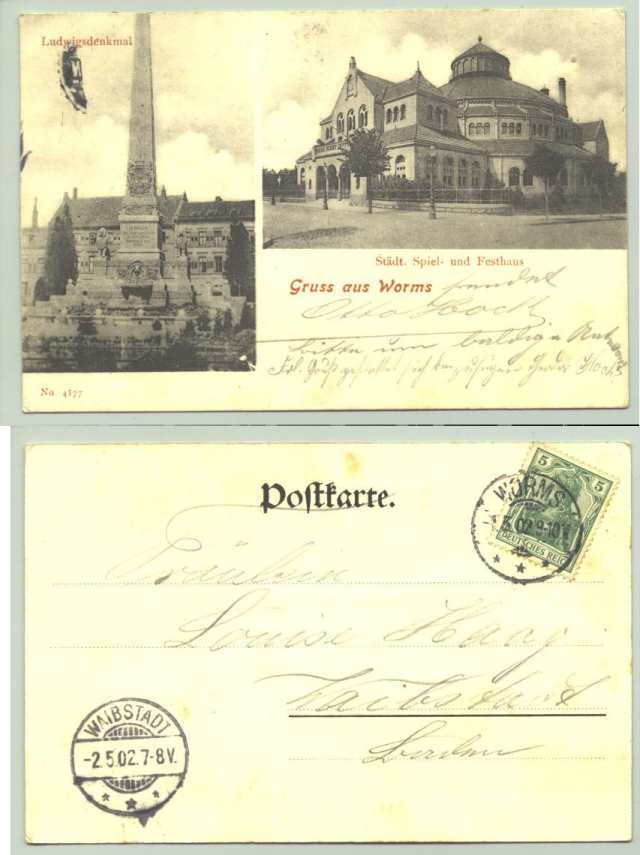 Ludwigsdenkmal
Städt. Spiel- und Festhaus
Gruss aus Worms sendet
Otto Koch
bitte um baldige Antwort
No 4177
Postkarte.
5 5
WORMS
5.02.9-10V.
DEUTSCHES REICH
Fräulein
Louise Haag
Waibstadt
Baden
WAIBSTADT
-2.5.02.7-8V.